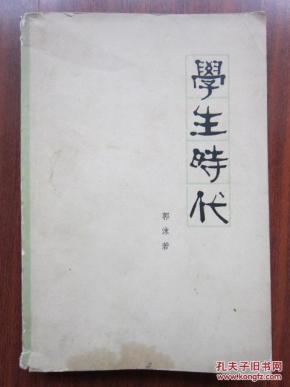 學生時代
郭沫若
孔夫子旧书网